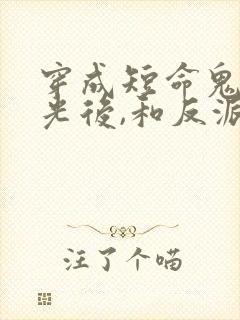 穿成短命鬼
光後,和反派
注了个喵